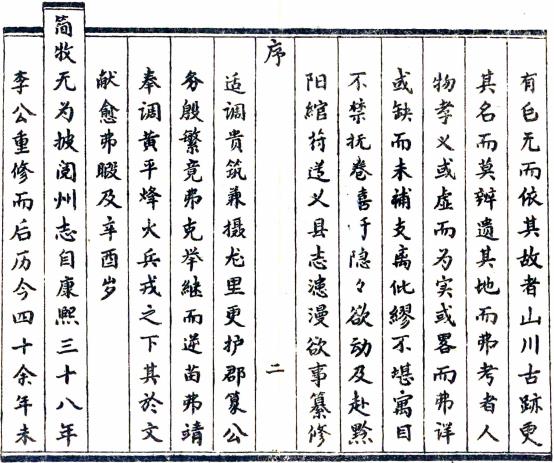 有已无而依其故者山川古跡更
其名而莫辨遗其地而弗考者人
物孝义或虚而为实或畧而弗详
或缺而未補支离仳缪不堪寓目
不禁抚卷喜于隐々欲动及赴黔
阳綰符送义县志漶漫欲事纂修
序
二
适调贵筑兼摄龙里更护郡篆公
务殷繁竟弗克举继而逆苗弗靖
奉调黄平烽火兵戎之下其於文
献愈弗暇及辛酉岁
简牧无为披阅州志自康熙三十八年
李公重修而后历今四十余年未